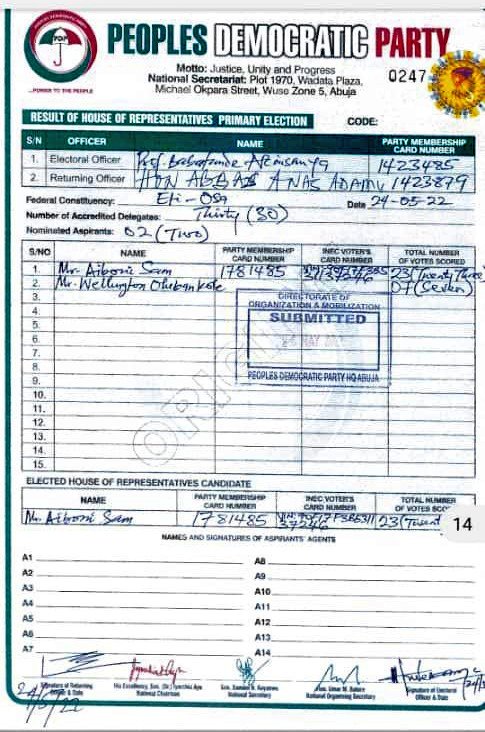 PDP
...POWER TO THE PEOPLE
PEOPLES DEMOCRATIC PARTY
Motto: Justice, Unity and Progress
National Secretariat: Plot 1970, Wadata Plaza,
Michael Okpara Street, Wuse Zone 5, Abuja
0247
RESULT OF HOUSE OF REPRESENTATIVES PRIMARY ELECTION CODE:
S/N OFFICER NAME PARTY MEMBERSHIP CARD NUMBER
1. Electoral Officer Prof. 1423485
2. Returning Officer HON ABBAS ANAS ADAMU 1423879
Federal Constituency: Eti-Osa Date 24-05-22
Number of Accredited Delegates: Thirty (30)
Nominated Aspirants: 02 (Two)
S/NO NAME PARTY MEMBERSHIP CARD NUMBER INEC VOTER'S CARD NUMBER TOTAL NUMBER OF VOTES SCORED
1. Mr. Aiboni Sam 1781485 23 (Twenty Three)
2. Mr. Wellington 07 (Seven)
3.
4.
5.
6.
7.
8.
9.
10.
11.
12.
13.
14.
15.
DIRECTORATE OF
ORGANIZATION & MOBILIZATION
SUBMITTED
MAY
PEOPLES DEMOCRATIC PARTY HQ ABUJA
ORIGINAL
ELECTED HOUSE OF REPRESENTATIVES CANDIDATE
NAME PARTY MEMBERSHIP CARD NUMBER INEC VOTER'S CARD NUMBER TOTAL NUMBER OF VOTES
Mr. Aiboni Sam 1781485 23
14
NAMES AND SIGNATURES OF ASPIRANTS' AGENTS
A1 A8
A2 A9
A3 A10
A4 A11
A5 A12
A6 A13
A7 A14
Signature of Returning Officer & Date
National Chairman
National Secretary
National Organising Secretary
Signature of Electoral Officer & Date
24/5/22